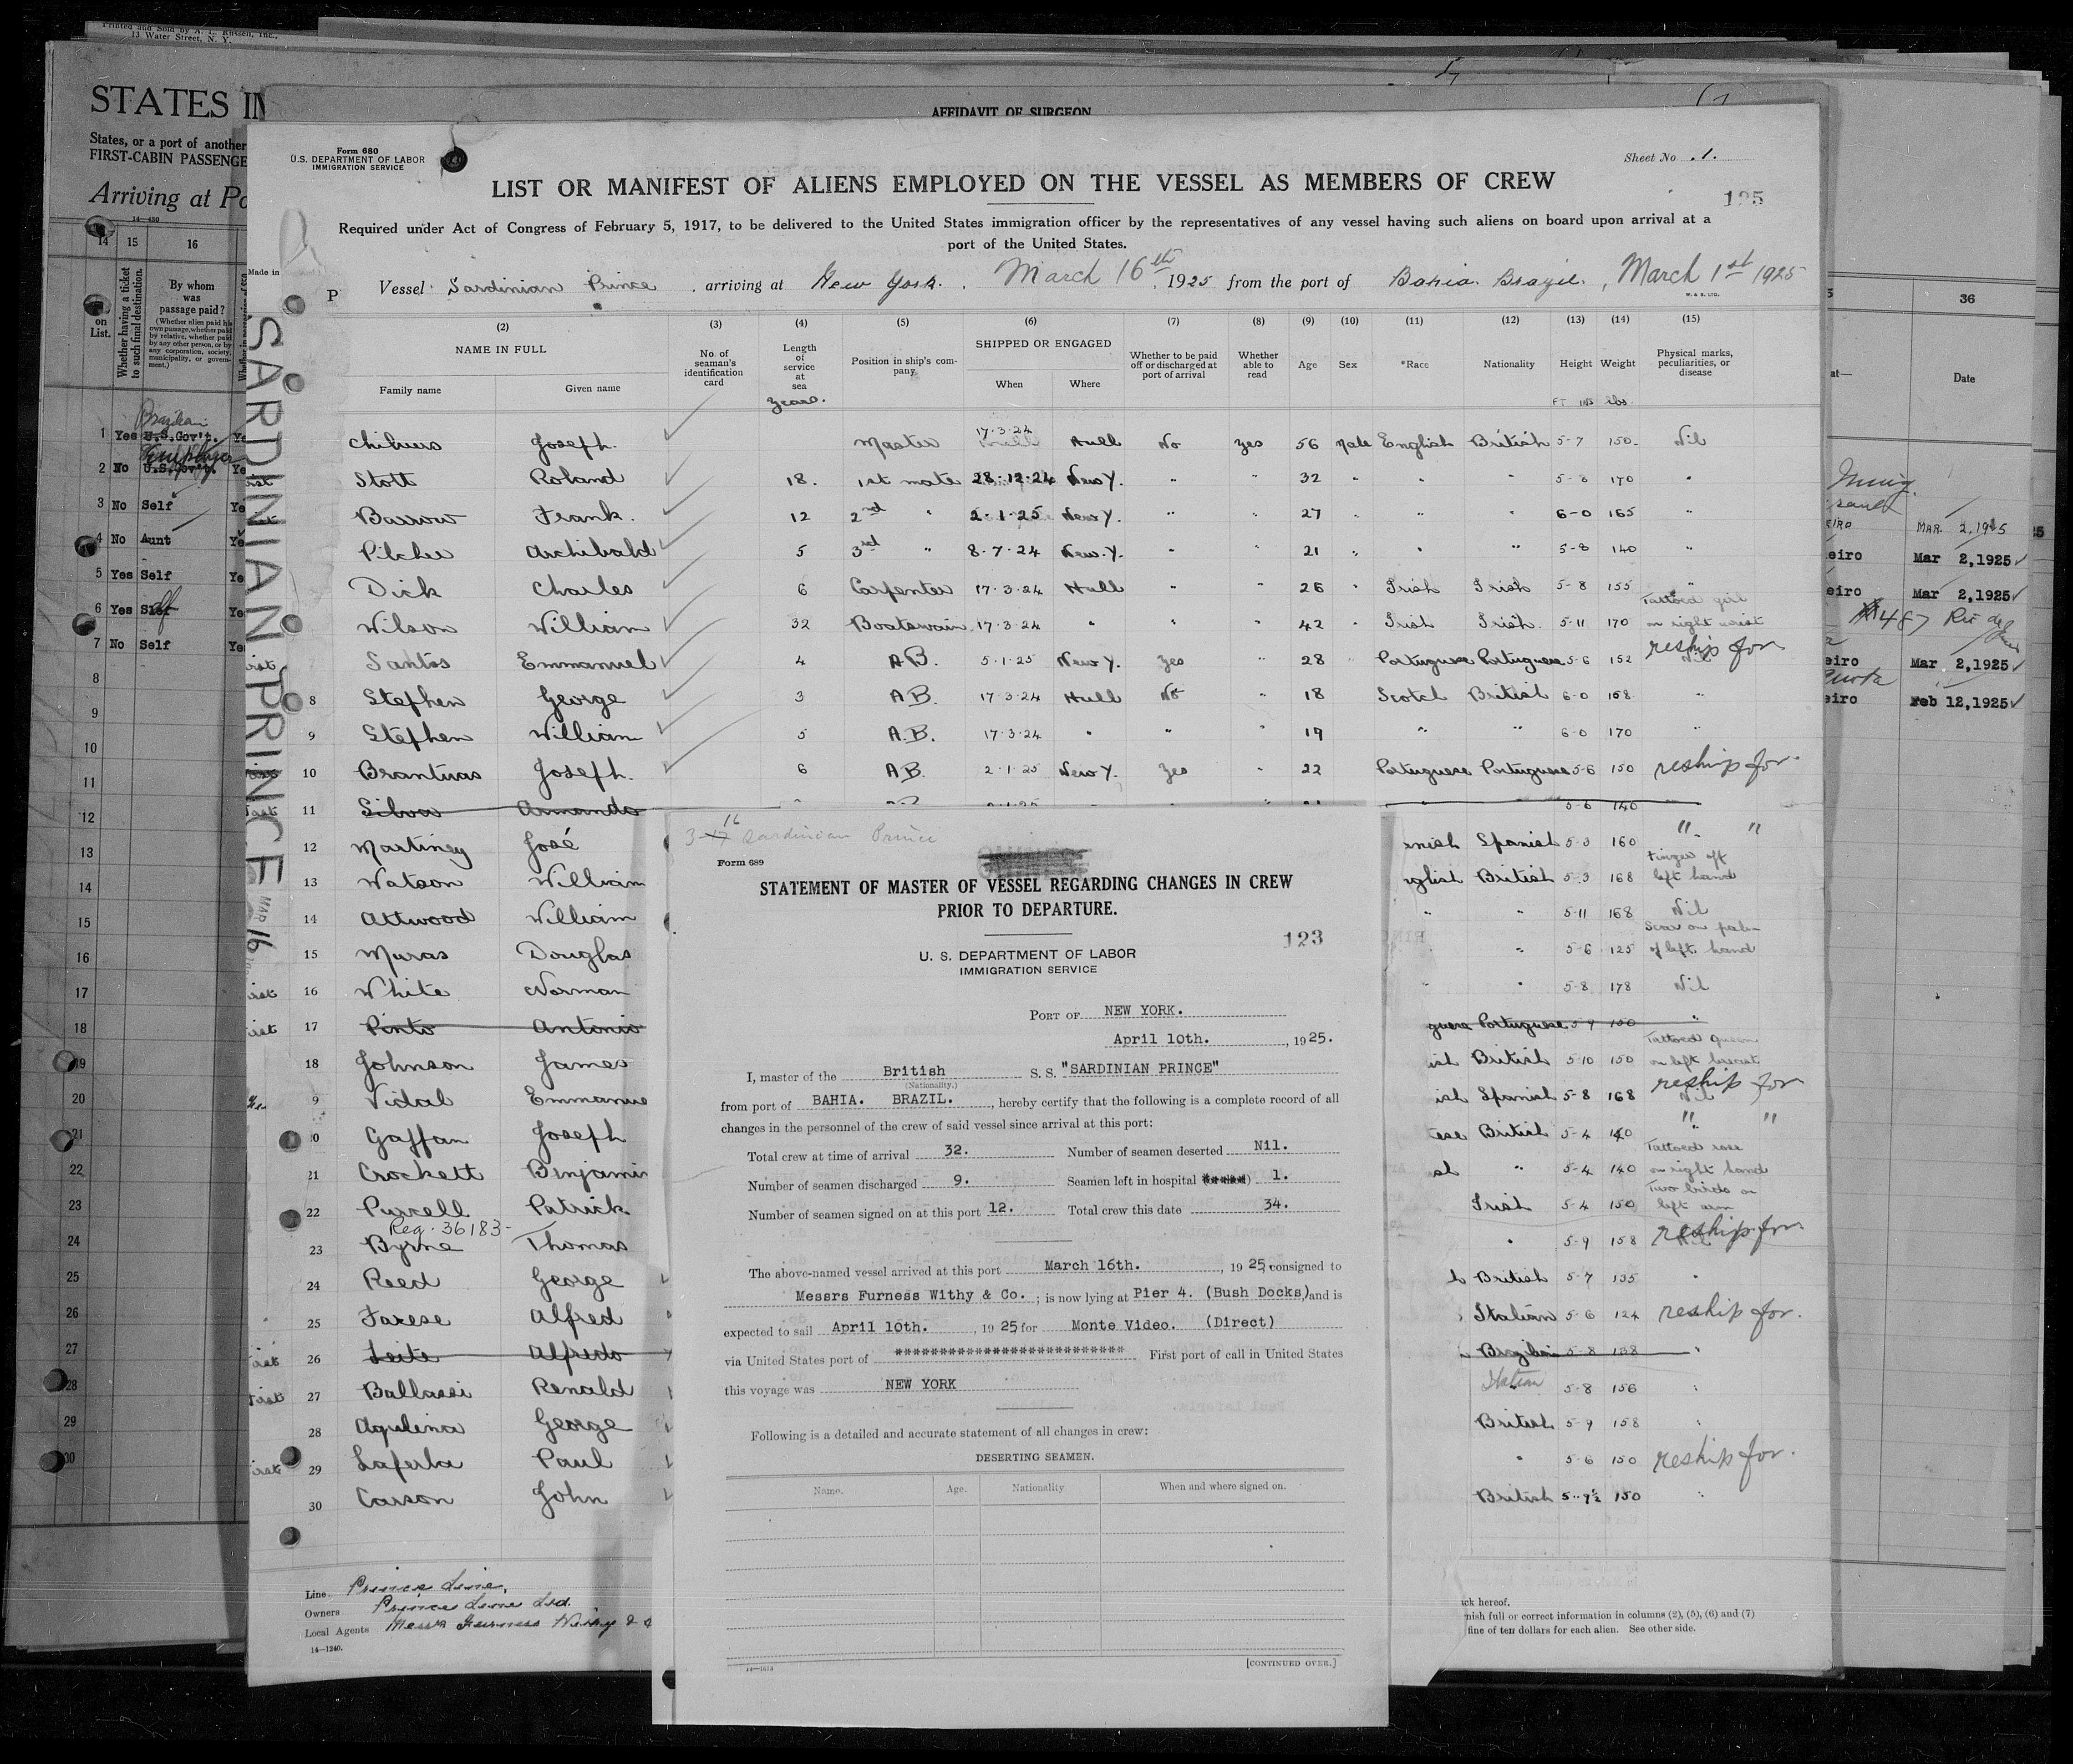 Printed and Sold by A. L. Russell, Inc.,
13 Water Street, N. Y.
STATES IN
States, or a port of another
FIRST-CABIN PASSENGE
Arriving at Po
14—430
14 15 16
on List.
Whether having a ticket to such final destination.
By whom was passage paid?
(Whether alien paid his own passage, whether paid by relative, whether paid by any other person, or by any corporation, society, municipality, or government.)
Brazilian
1 Yes U.S.Gov't. Ye
Employer
2 No U.S.Gov't. Ye
3 No Self Ye
4 No Aunt Ye
5 Yes Self Ye
6 Yes Self Ye
7 No Self Ye
8
9
10
11
12
13
14
15
16
17
18
19
20
21
22
23
24
25
26
27
28
29
30
AFFIDAVIT OF SURGEON
Form 680
U.S. DEPARTMENT OF LABOR
IMMIGRATION SERVICE
Sheet No. 1.
LIST OR MANIFEST OF ALIENS EMPLOYED ON THE VESSEL AS MEMBERS OF CREW
125
Required under Act of Congress of February 5, 1917, to be delivered to the United States immigration officer by the representatives of any vessel having such aliens on board upon arrival at a
port of the United States.
Made in
P Vessel Sardinian Prince, arriving at New York. March 16th, 1925 from the port of Bahia Brazil, March 1st 1925
SARDINIAN PRINCE
MAR 16
(2) (3) (4) (5) (6) (7) (8) (9) (10) (11) (12) (13) (14) (15)
NAME IN FULL
Family name Given name
No. of seaman's identification card
Length of service at sea
years.
Position in ship's company
SHIPPED OR ENGAGED
When Where
Whether to be paid off or discharged at port of arrival
Whether able to read
Age Sex *Race Nationality Height Weight
Physical marks, peculiarities, or disease
FT INS lbs
Chilvers Joseph. Master 17.3.24 Hull No Yes 56 Male English British 5-7 150 Nil
Stott Roland 18. 1st mate 28.12.24 New Y. " " 32 " " " 5-8 170 "
Barrow Frank. 12 2nd " 2.1.25 New Y. " " 27 " " " 6-0 165 "
Pilcher Archibald 5 3rd " 8.7.24 New.Y. " " 21 " " " 5-8 140 "
Dick Charles 6 Carpenter 17.3.24 Hull " " 26 " Irish Irish 5-8 155 "
Wilson William 32 Boatswain 17.3.24 " " " 42 " Irish Irish. 5-11 170 Tattoed girl on right wrist
Santos Emmanuel 4 A.B. 5.1.25 New Y. Yes " 28 " Portuguese Portuguese 5-6 152 Nil reship for
8 Stephen George 3 A.B. 17.3.24 Hull No " 18 Scotch British 6-0 158 "
9 Stephen William 5 A.B. 17.3.24 " " " 19 " " 6-0 170 "
10 Brantuas Joseph. 6 A.B. 2.1.25 New Y. Yes " 22 Portuguese Portuguese 5-6 150 reship for.
11 Silva Armando 5-6 140
12 Martinez José nish Spanish 5-3 160 " "
13 Watson William nglish British 5-3 168 Finger off left hand
14 Attwood William " " 5-11 168 Nil
15 Muras Douglas " 5-6 125 Scar on palm of left hand
16 White Norman " " 5-8 178 Nil
17 Pinto Antonio guese Portuguese 5-9 150 "
18 Johnson James ish British 5-10 150 Tattoed Queen on left breast
9 Vidal Emmanue ish Spanish 5-8 168 Nil reship for
20 Gaffan Joseph tese British 5-4 140 " "
21 Crockett Benjamin sh " 5-4 140 Tattoed rose on right hand
22 Purcell Patrick Irish 5-4 150 Two birds on left arm
Reg. 36183-
23 Byrne Thomas " 5-9 158 reship for.
24 Reed George h British 5-7 135 "
25 Farese Alfred Italian 5-6 124 reship for.
26 Leite Alfredo Brazilian 5-8 138 "
27 Ballassi Renald Italian 5-8 156 "
28 Aquilina George British 5-9 158 "
29 Laferla Paul " 5-6 150 reship for.
30 Carson John British 5-9½ 150 "
Line Prince Line,
Owners Prince Line Ltd.
Local Agents Messrs Furness Withy & C
14—1240.
ck hereof.
nish full or correct information in columns (2), (5), (6) and (7)
fine of ten dollars for each alien. See other side.
3-16 Sardinian Prince
Form 689
STATEMENT OF MASTER OF VESSEL REGARDING CHANGES IN CREW
PRIOR TO DEPARTURE.
123
U. S. DEPARTMENT OF LABOR
IMMIGRATION SERVICE
PORT OF NEW YORK.
April 10th., 1925.
I, master of the British S. S. "SARDINIAN PRINCE"
(Nationality.)
from port of BAHIA. BRAZIL., hereby certify that the following is a complete record of all
changes in the personnel of the crew of said vessel since arrival at this port:
Total crew at time of arrival 32. Number of seamen deserted Nil.
Number of seamen discharged 9. Seamen left in hospital 1.
Number of seamen signed on at this port 12. Total crew this date 34.
The above-named vessel arrived at this port March 16th., 1925, consigned to
Messrs Furness Withy & Co.; is now lying at Pier 4. (Bush Docks) and is
expected to sail April 10th., 1925 for Monte Video. (Direct)
via United States port of ************************** First port of call in United States
this voyage was NEW YORK
Following is a detailed and accurate statement of all changes in crew:
DESERTING SEAMEN.
Name. Age. Nationality When and where signed on.
14—1613
[CONTINUED OVER.]
36
at— Date
eiro MAR. 2,1925
eiro Mar 2,1925
eiro Mar 2,1925
487 Rio de
eiro Mar 2,1925
eiro Feb 12,1925